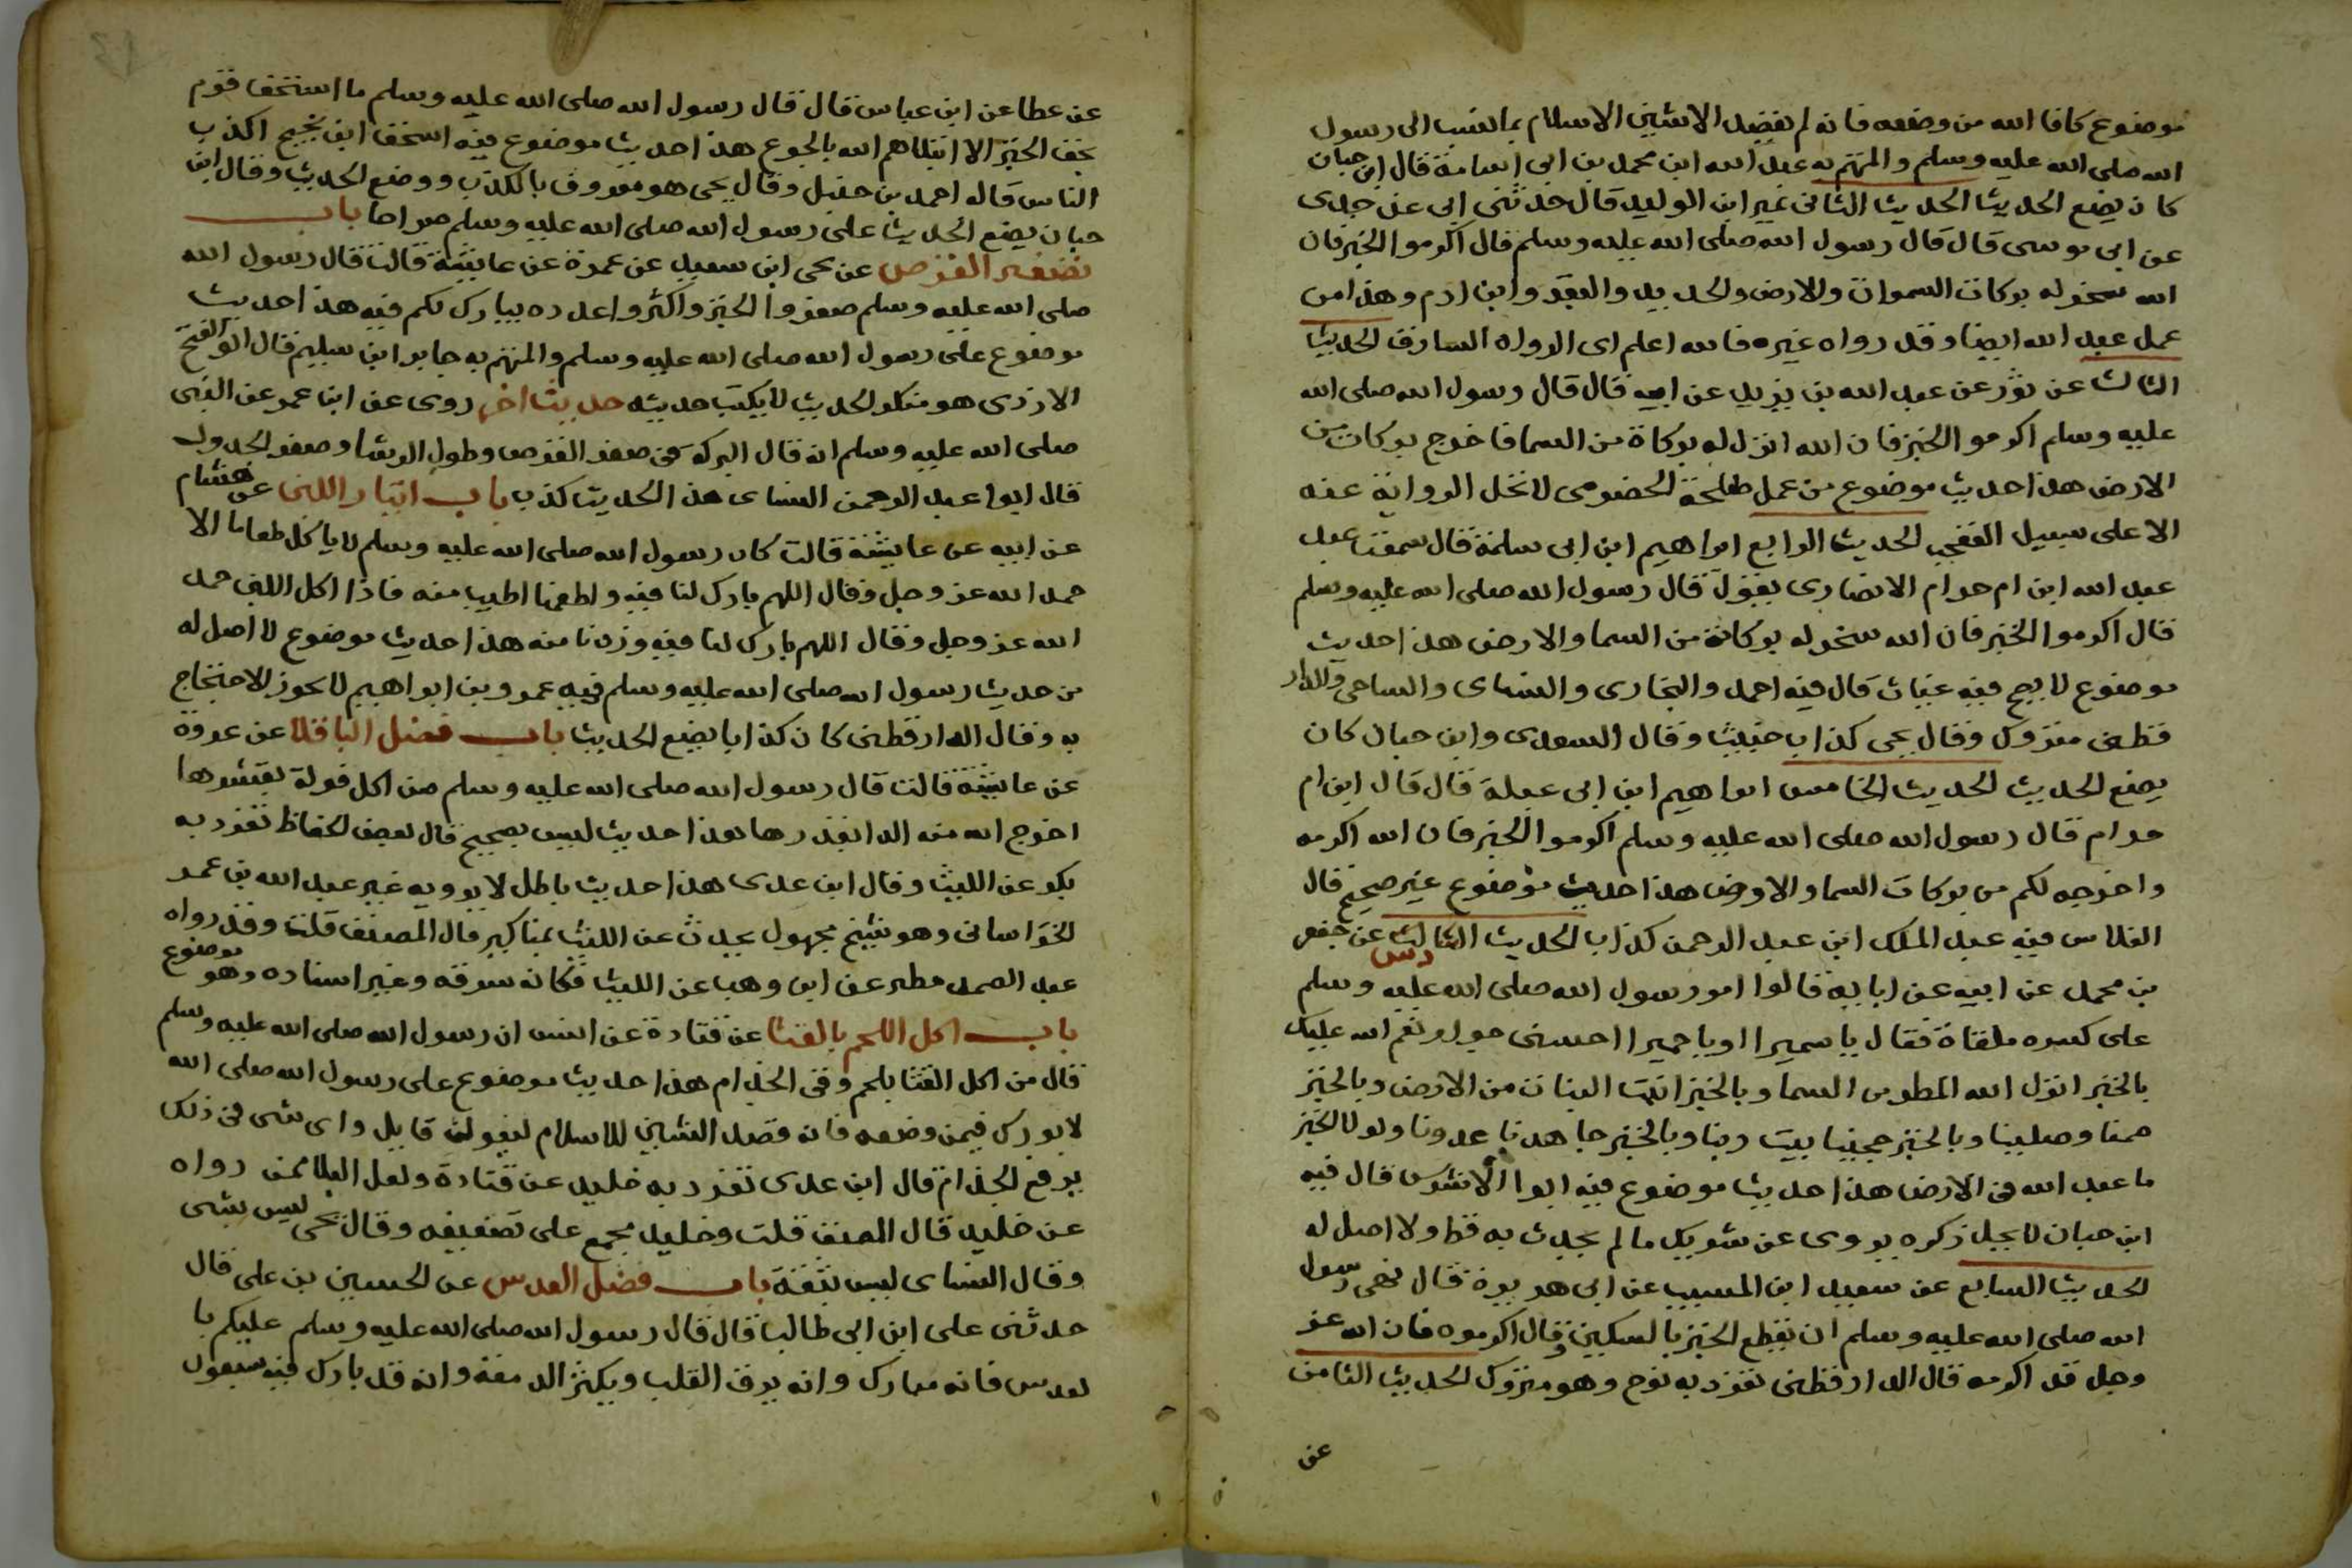 موضوع كافا الله من وضعه فانه لم يقصد الا شين الاسلام بما نسب الى رسول
الله صلى الله عليه وسلم والمتهم به عبد الله ابن محمد بن ابى اسامة قال ابن حبان
كان يضع الحديث الحديث الثانى نمير ابن الوليد قال حدثنى ابى عن جدى
عن ابى موسى قال قال رسول الله صلى الله عليه وسلم قال اكرموا الخبز فان
الله سخر له بركات السموات والارض والحديد والبقر وابن ادم وهذا من
عمل عبد الله ايضا وقد رواه غيره فالله اعلم اى الرواه السارق الحديث
الثالث عن ثور عن عبد الله بن يزيد عن ابيه قال قال رسول الله صلى الله
عليه وسلم اكرموا الخبز فان الله انزل له بركاة من السما فاخرج بركات من
الارض هذا حديث موضوع من عمل طلحة الحضرمى لا تحل الرواية عنه
الا على سبيل التعجب الحديث الرابع ابراهيم ابن ابى سلمة قال سمعت عبد
عبد الله ابن ام حرام الانصارى يقول قال رسول الله صلى الله عليه وسلم
قال اكرموا الخبز فان الله سخر له بركاته من السما والارض هذا حديث
موضوع لا يصح فيه غياث قال فيه احمد والبخارى والنساى والساجى والدار
قطنى متروك وقال يحى كذاب خبيث وقال السعدى وابن حبان كان
يضع الحديث الحديث الخامس ابراهيم ابن ابى عبلة قال قال ابن ام
حرام قال رسول الله صلى الله عليه وسلم اكرموا الخبز فان الله اكرمه
واخرجه لكم من بركات السما والارض هذا حديث موضوع غير صحيح قال
الفلاس فيه عبد الملك ابن عبد الرحمن كذاب الحديث السادس عن جعفر
بن محمد عن ابيه عن ابايه قالوا امر رسول الله صلى الله عليه وسلم
على كسره ملقاة فقال يا سميرا او يا حميرا احسنى جوار نعم الله عليك
بالخبز انزل الله المطر من السما وبالخبز انبت النبات من الارض وبالخبز
صمنا وصلينا وبالخبز حججنا بيت ربنا وبالخبز جاهدنا عدونا ولولا الخبز
ما عبد الله فى الارض هذا حديث موضوع فيه ابوا الاشرس قال فيه
ابن حبان لا يحل ذكره يروى عن شريك ما لم يحدث به قط ولا اصل له
الحديث السابع عن سعيد ابن المسيب عن ابى هريرة قال نهى رسول
الله صلى الله عليه وسلم ان يقطع الخبز بالسكين وقال اكرموه فان الله عز
وجل قد اكرمه قال الدارقطنى تفرد به نوح وهو متروك الحديث الثامن
عن
عن عطا عن ابن عباس قال قال رسول الله صلى الله عليه وسلم ما استخف قوم
بحق الخبز الا ابتلاهم الله بالجوع هذا حديث موضوع فيه اسحق ابن نجيح اكذب
الناس قاله احمد بن حنبل وقال يحى هو معروف بالكذب ووضع الحديث وقال ابن
حبان يضع الحديث على رسول الله صلى الله عليه وسلم صراحا باب
تصغير القرص عن يحى ابن سعيد عن عمرة عن عايشة قالت قال رسول الله
صلى الله عليه وسلم صغروا الخبز واكثروا عدده يبارك لكم فيه هذا حديث
موضوع على رسول الله صلى الله عليه وسلم والمتهم به جابر ابن سليم قال ابو الفتح
الازدى هو منكر الحديث لا يكتب حديثه حديث اخر روى عن ابن عمر عن النبى
صلى الله عليه وسلم انه قال البركة فى صغر القرص وطول الرشا وصغر الجدول
قال ابوا عبد الرحمن النساى هذا الحديث كذب باب اتيار اللبن عن هشام
عن ابيه عن عايشة قالت كان رسول الله صلى الله عليه وسلم لا ياكل طعاما الا
حمد الله عز وجل وقال اللهم بارك لنا فيه واطعمنا اطيب منه فاذا اكل اللبن حمد
الله عز وجل وقال اللهم بارك لنا فيه وزدنا منه هذا حديث موضوع لا اصل له
من حديث رسول الله صلى الله عليه وسلم فيه عمرو بن ابراهيم لا يجوز الاحتجاج
به وقال الدارقطنى كان كذابا يضع الحديث باب فضل الباقلا عن عروة
عن عايشة قالت قال رسول الله صلى الله عليه وسلم من اكل فولة بقشرها
اخرج الله منه الدا بقدرها هذا حديث ليس بصحيح قال بعض الحفاظ تفرد به
بكر عن الليث وقال ابن عدى هذا حديث باطل لا يرويه غير عبد الله بن عمر
الخراسانى وهو شيخ مجهول يحدث عن الليث بمناكير قال المصنف قلت وقد رواه
عبد الصمد مطير عن ابن وهب عن الليث فكانه سرقه وغير اسناده وهو موضوع
باب اكل اللحم بالقثا عن قتادة عن انس ان رسول الله صلى الله عليه وسلم
قال من اكل القثا بلحم وقى الجذام هذا حديث موضوع على رسول الله صلى الله
لا بورك فيمن وضعه فانه قصد الشين للاسلام ليقول قايل واى شى فى ذلك
يرفع الجذام قال ابن عدى تفرد به خليد عن قتادة ولعل البلا ممن رواه
عن خليد قال المصنف قلت وخليد مجمع على تضعيفه وقال يحى ليس بشى
وقال النساى ليس بثقة باب فضل العدس عن الحسين بن على قال
حدثنى على ابن ابى طالب قال قال رسول الله صلى الله عليه وسلم عليكم با
لعدس فانه مبارك وانه يرق القلب ويكثر الدمعة وانه قد بارك فيه سبعون